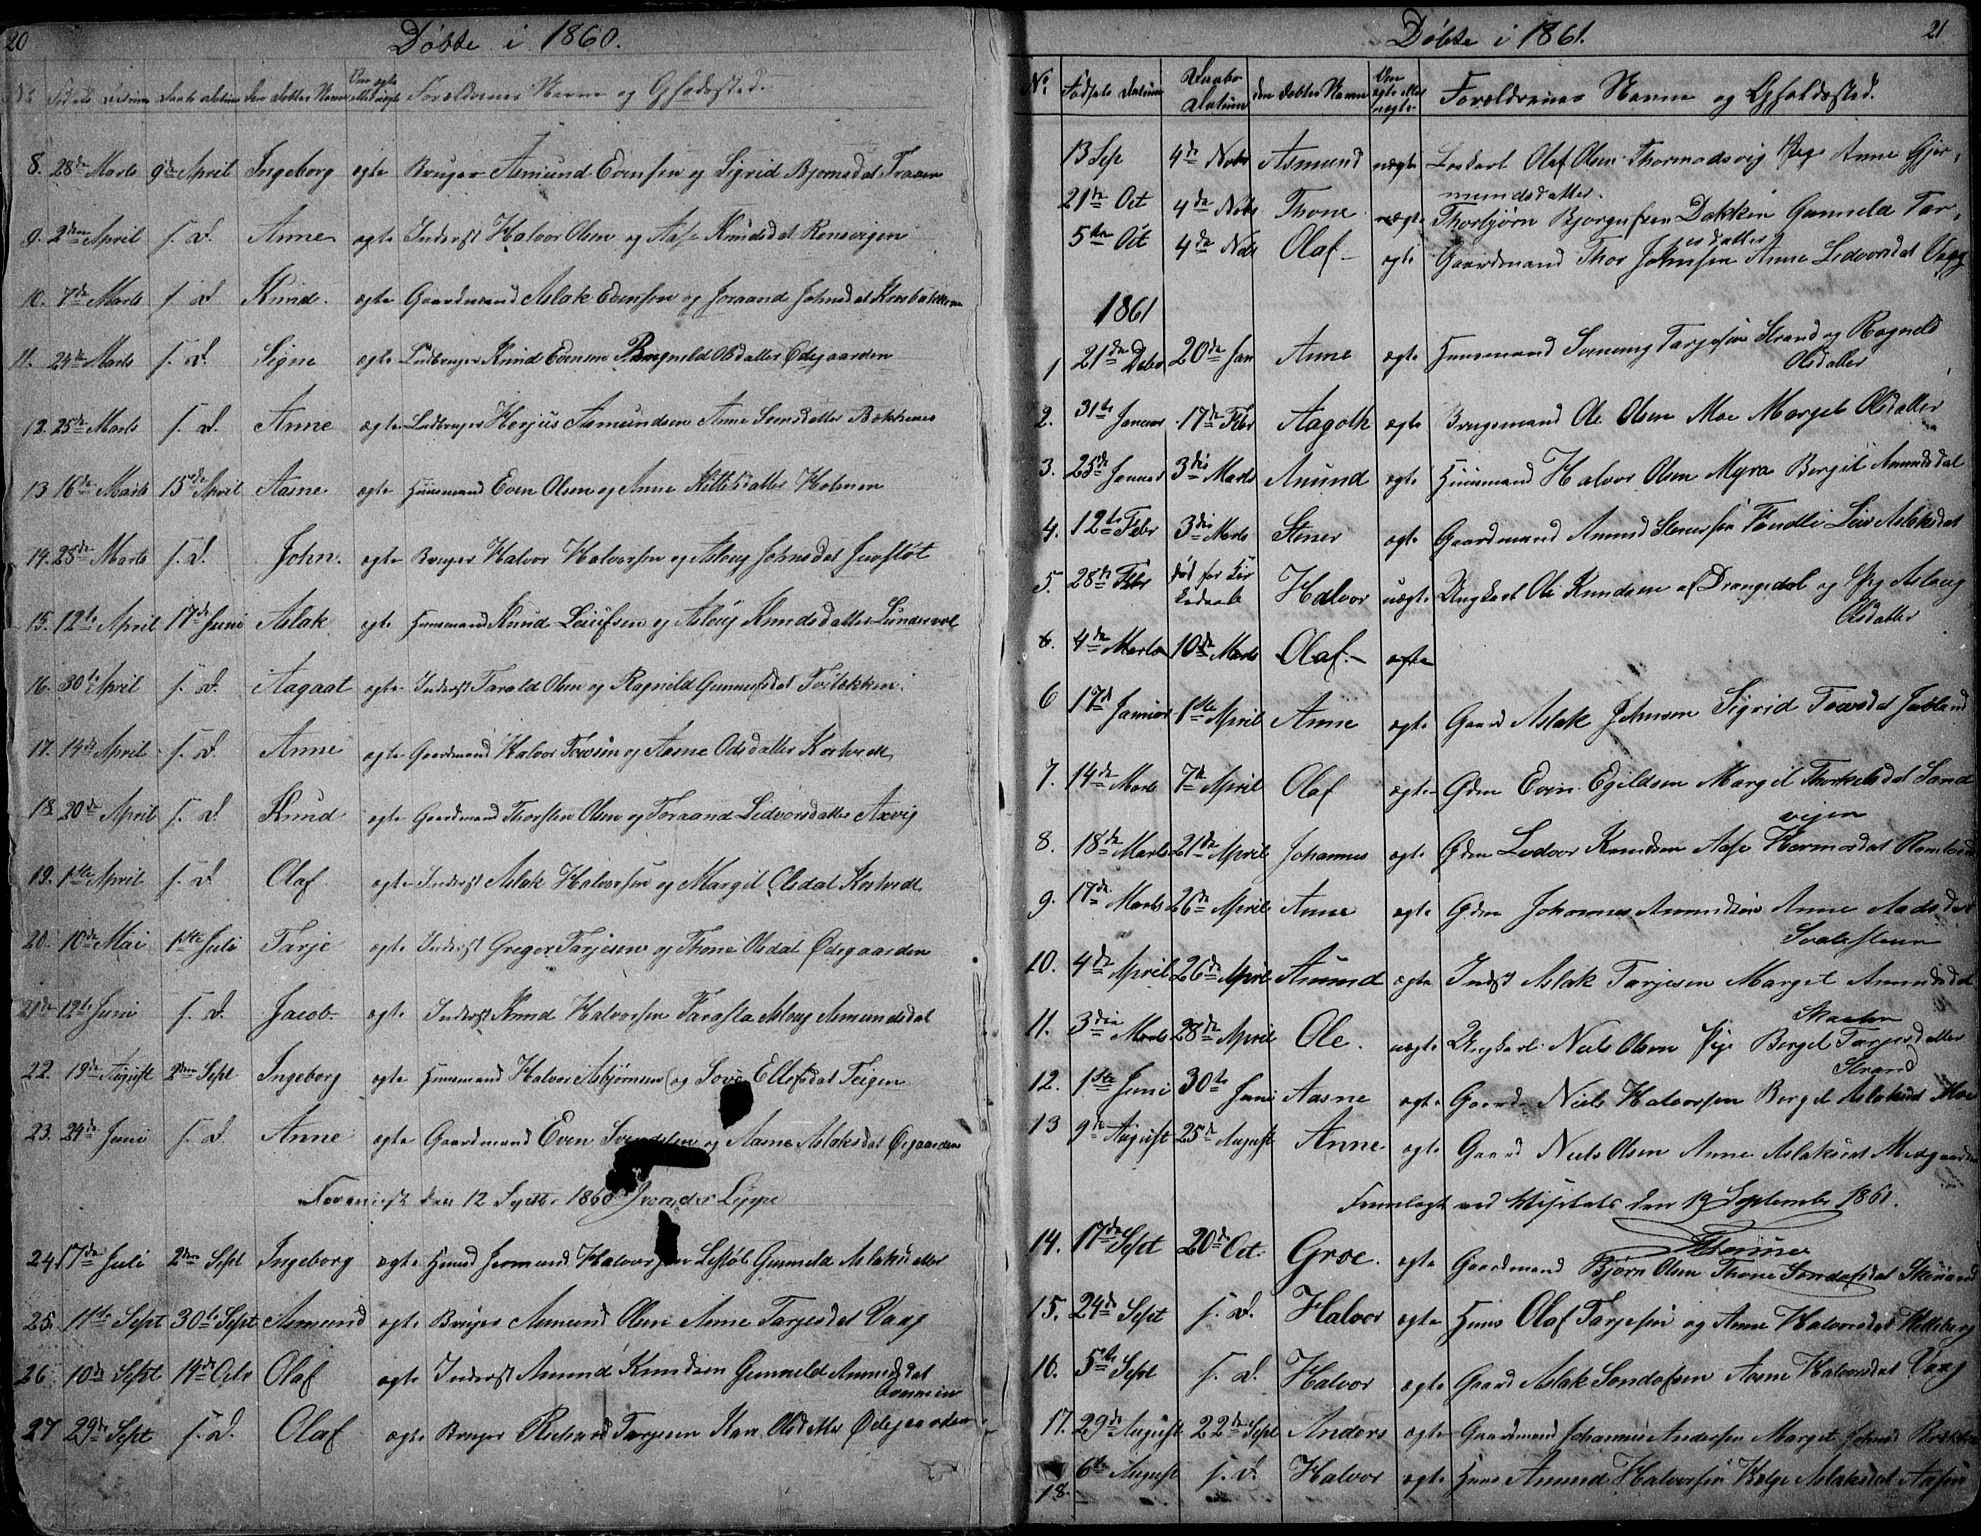 20
Døbte i 1860.
No Fødsels Datum Daab Datum Den Døbtes Navn Om ægte eller uægte Forældrenes Navne og Opholdssted.
8. 28de Marts 9de April Ingeborg ægte Bruger Asmund Evensen og Sigrid Bjørnsdat Traaen
9. 2den April s. D. Anne ægte Inderst Halvor Olsen og Aase Knudsdat Rensvigen
10. 7de Marts s. D. Knud ægte Gaardmand Aslak Evensen og Joraand Johnsdat
11. 24de Marts s. D. Signe ægte Ludbruger Knud Evensen Ragneld Olsdatter Ødegaarden
12. 25de Marts s. D. Anne ægte Ludbruger Herjus Asmundsen Anne Bækkenes
13. 16de Marts 13de April Aasne ægte Huusmand Even Olsen og Anne Kittelsdatter Holmen
14. 28de Marts s. D. John. ægte Bruger Halvor Halvorsen og Aslaug Johnsdat
15. 12te April 17de Juni Aslak ægte Huusmand Knud Leifsen og Aslaug Knudsdatter Lundevol
16. 30te April s. D. Aagaat ægte Inderst Tarald Olsen og Ragneld Gunnulfsdat
17. 14de April s. D. Anne ægte Gaardmand Halvor Tovsen og Aasne Olsdatter Kostvedt
18. 20de April s. D. Knud ægte Gaardmand Thorsten Olsen og Joraand Ledvorsdatter Axvig
19. 1ste April s. D. Olaf ægte Inderst Aslak Halvorsen og Margit Olsdat Kostvedt
20. 10de Mai 1ste Juli Tarje ægte Inderst Greger Tarjesen og Thone Olsdat Ødegaarden
21de 12te Juni s. D. Jacob ægte Inderst Knud Halvorsen Aslaug Asmundsdat
22. 19de August 2den Sept Ingeborg ægte Huusmand Halvor Asbjørnsen og Ellefsdat Teigen
23. 24de Juni s. D. Anne ægte Gaardmand Even Svendsen og Aasne Aslaksdat Øygaarden
den 12 Septbr 1860
24 17de Juli 2den Sept Ingeborg ægte Halvorsen Gunneld Aslaksdatter
25. 11te Sept 30te Sept Asmund ægte Bruger Asmund Olsen Anne Tarjesdat Vaag
26 10de Sept 14de Octr Olaf ægte Inderst Amund Knudsen Gunneld Amundsdat
27 29de Sept s. D. Olaf ægte Bruger Tarjesen Olsdatter Ødegaarden
Døbte i 1861.
21
No. Fødsels Datum Daabs Datum den Døbtes Navn Om ægte eller uægte Forældrenes Navne og Opholdssted.
13 Sep 4de Nobr Asmund uægte Olaf Olsen Thormodsvig Pige Anne Gjer-
mundsdatter.
21de Oct 4de Nobr Thone uægte Thorbjørn Bjorgufsen Dokken Gunneld Tar-
jesdatter
5te Oct 4de Nobr Olaf ægte Gaardmand Thor Johnsen Anne Ledvorsdat Vaag
1861
1 21de Debr 20de Jan Anne ægte Huusmand Tarjesen Strand og Ragneld
Olsdatter
2. 31te Januar 17de Febr Aagoth ægte Brugsmand Ole Olsen Moe Marget Olsdatter
3. 25de Januar 3die Marts Amund ægte Huusmand Halvor Olsen Myra Bergit Amundsdat
4. 12te Febr 3die Marts Stener ægte Gaardmand Amund Stenersen Aslaksdat
5. 28de Febr død før Kir- Halvor uægte Ungkarl Ole Knudsen af Drangedal og Pig Aslaug
kedaab Olsdatter
6. 4de Marts 10de Marts Olaf. ægte
6 17de Januar 1ste April Anne ægte Gaard Aslak Johnsen Sigrid Tovsdat
7. 14de Marts 7de April Olaf ægte Gdm Even Egildsen Margit Thorkildsdat Sand-
vigen
8. 18de Marts 21de April Johannes ægte Gdm Ledvor Knudsen Aase
9. 17de Marts 26de April Anne ægte Gdm Johannes Amundsen Anne Aadsdat
10. 4de April 26de April Amund ægte Inderst Aslak Tarjesen Marget Amundsdat
11. 3die Marts 28de April Ole. uægte Ungkarl Niels Olsen Pige Berget Tarjesdatter
Strand
12. 1ste Juni 30te Juni Aasne ægte Gaard Niels Halvorsen Berget Aslaksdat Moe
13 9de August 25de August Anne ægte Gaard Niels Olsen Anne Aslaksdat Midgaarden
Fremlagt ved Visitats den 19 September 1861.
14. 17de Sept 20de Oct. Groe. ægte Gaardmand Bjørn Olsen Thone Sondofsdat
15. 24de Sept s. D. Halvor ægte Huus Olaf Tarjesen og Anne Halvorsdat
16. 5te Sept s. D. Halvor ægte Gaard Aslak Sondofsen Aasne Halvorsdat Vaag
17. 29de August 22de Sept Anders ægte Gaardmand Johannes Andersen Marget Johnsd
18. 6te August s. D. Halvor ægte Huus Amund Halvorsen Helge Aslaksdat Aasen